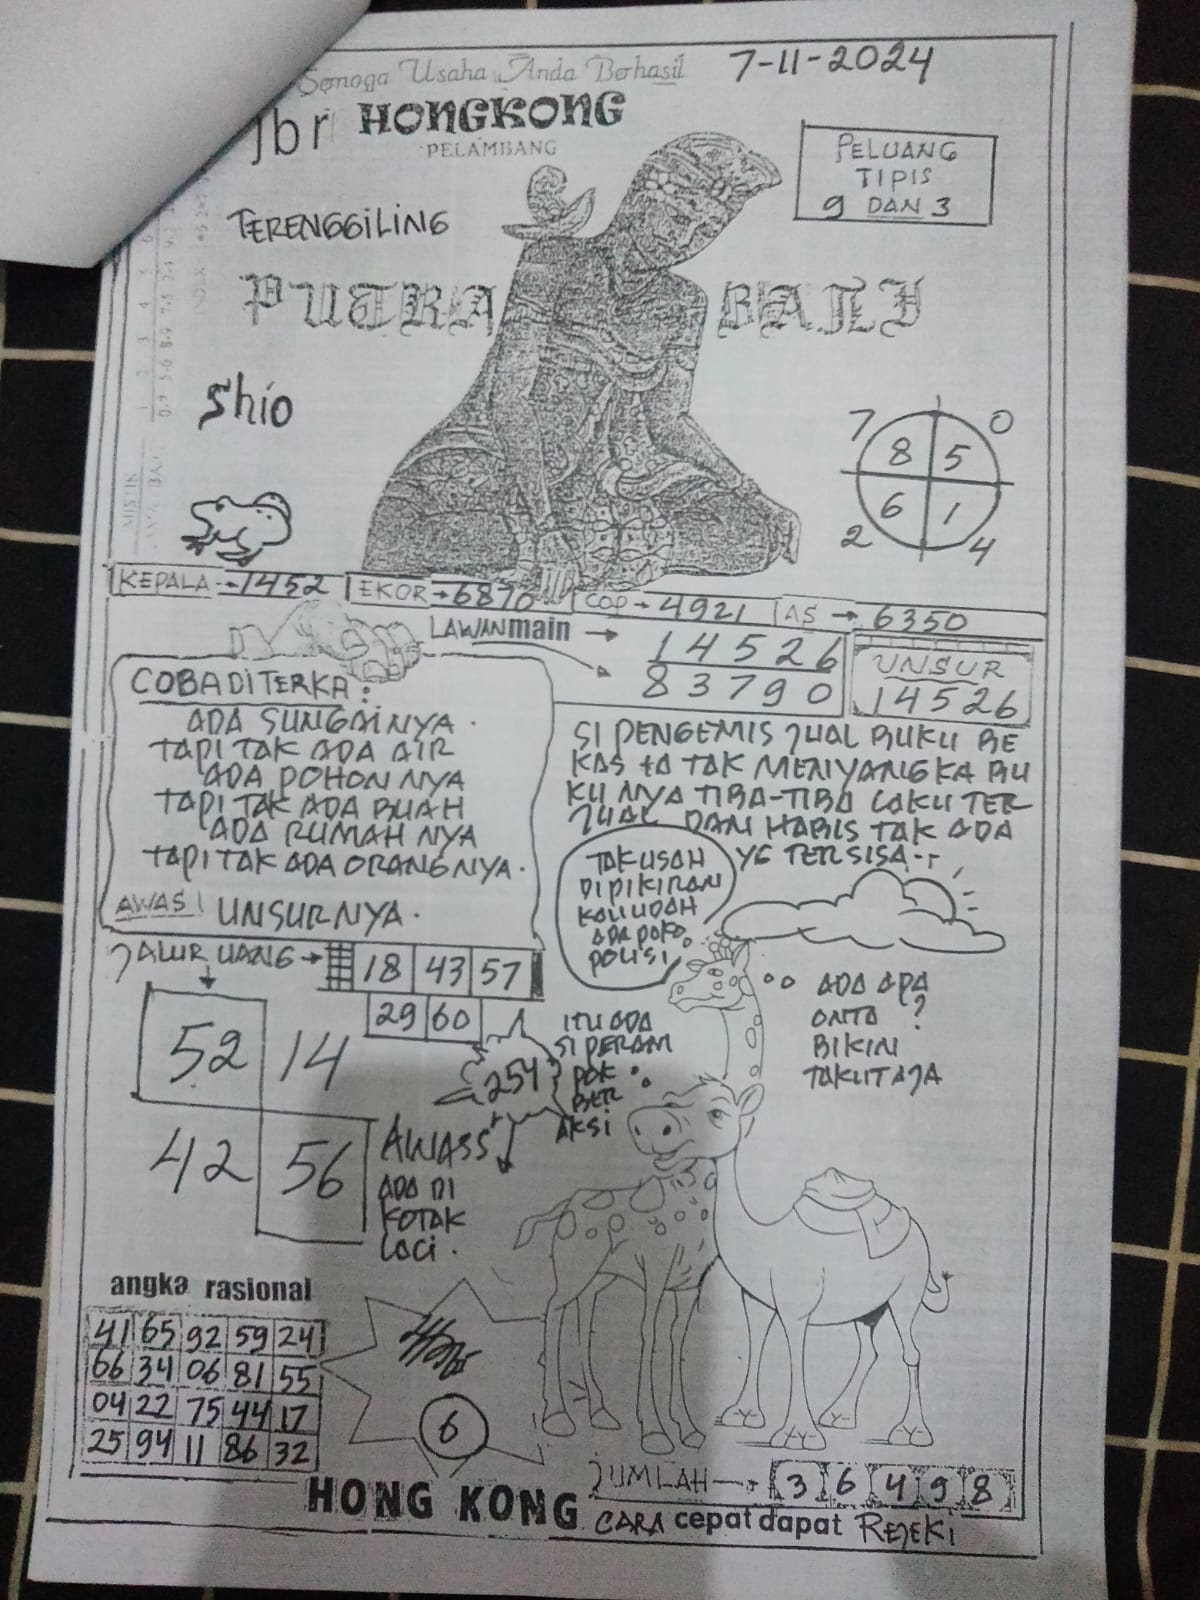 Semoga Usaha Anda Berhasil
7-11-2024
jbr HONGKONG
PELAMBANG
PELUANG
TIPIS
9 DAN 3
TERENGGILING
PUTRA BALI
Shio
7 0
8 5
6 1
2 4
KEPALA → 1452
EKOR → 6870
COP → 4921
AS → 6350
LAWAN main → 14526
83790
UNSUR
14526
COBA DITERKA :
ADA SUNGAINYA .
TAPI TAK ADA AIR
ADA POHONNYA
TAPI TAK ADA BUAH
ADA RUMAHNYA
TAPI TAK ADA ORANGNYA .
AWAS! UNSURNYA .
SI PENGEMIS JUAL BUKU BE
KAS TA TAK MENYANGKA BU
KUNYA TIBA-TIBA LAKU TER
JUAL DAN HABIS TAK ADA
YG TERSISA..
TAK USAH
DIPIKIRAN
KALI UDAH
ADA POKO
POLISI
JALUR UANG →
18 43 57
29 60
52 14
42 56
254
ITU ADA
SI PERAM
POK
BER
AKSI
ADA APA
ONTA ?
BIKIN
TAKUT AJA
AWASS
ADA DI
KOTAK
LACI .
angka rasional
41 65 92 59 24
66 34 06 81 55
04 22 75 44 17
25 94 11 86 32
6
JUMLAH → 3 6 4 9 8
HONG KONG
CARA cepat dapat REJEKI